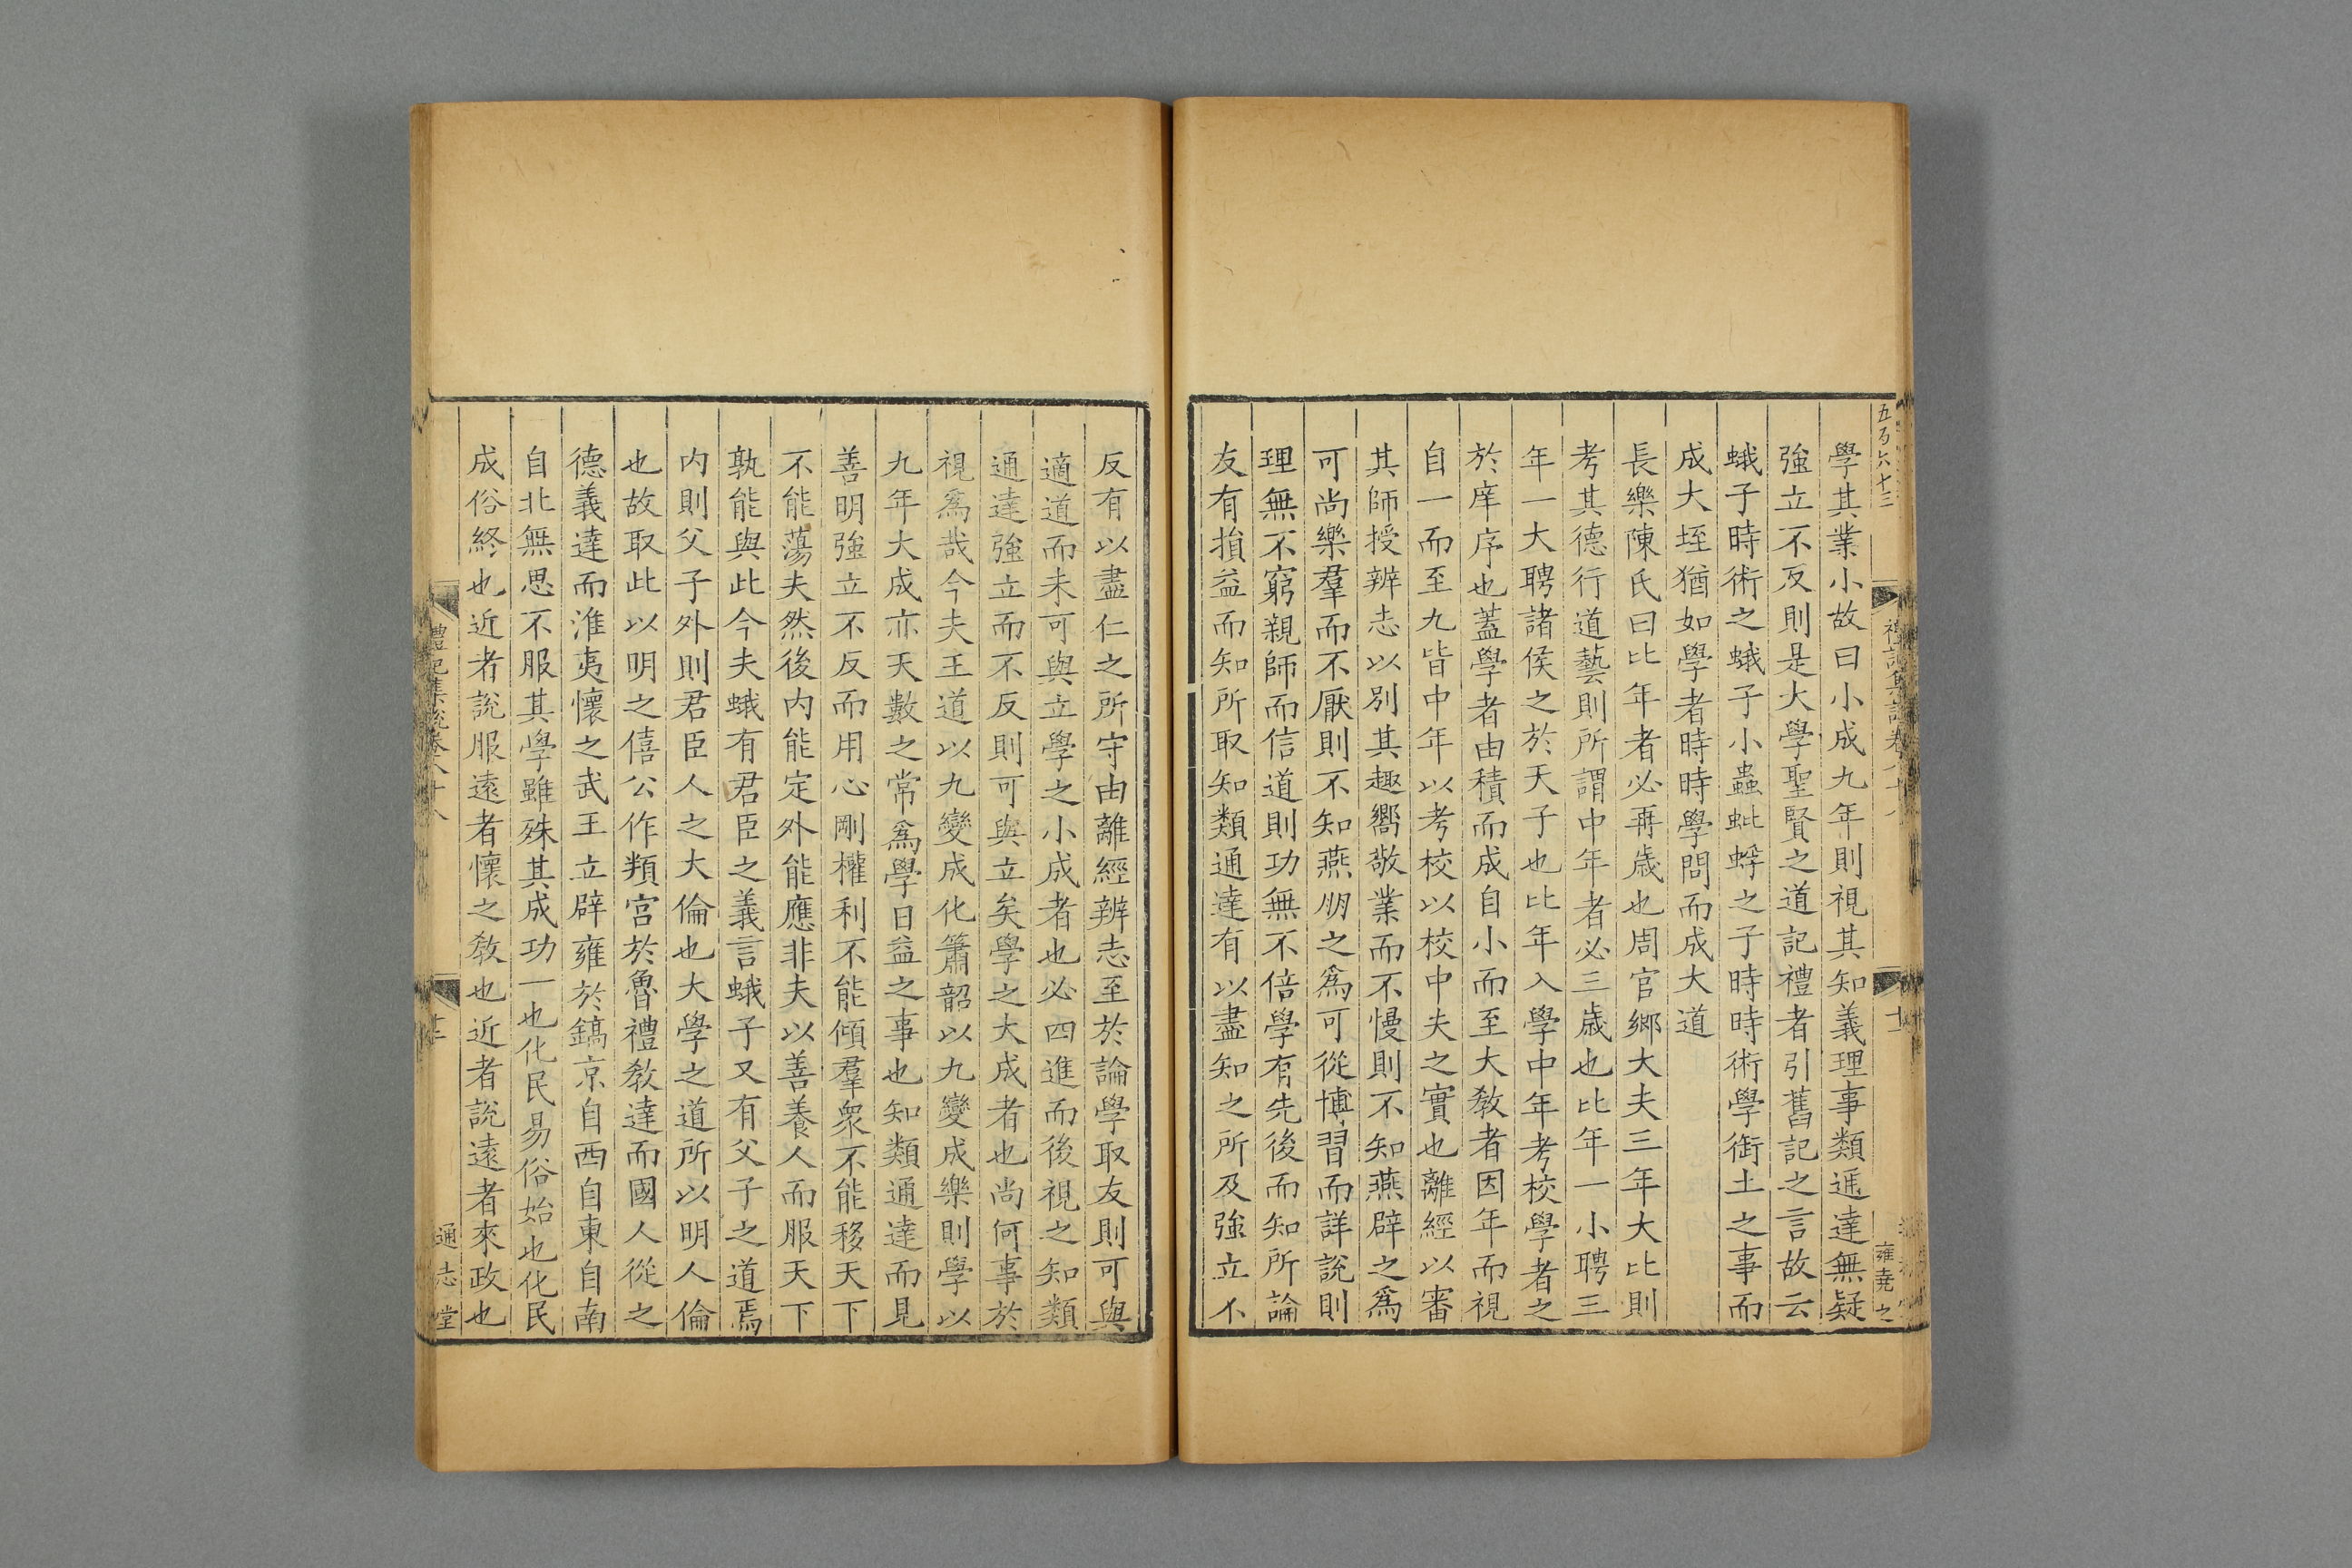 五百六十三
學其業小故曰小成九年則視其知義理事類通達無疑
強立不反則是大學聖賢之道記禮者引舊記之言故云
蛾子時術之蛾子小蟲蚍蜉之子時時術學銜土之事而
成大垤猶如學者時時學問而成大道
長樂陳氏曰比年者必再歲也周官鄉大夫三年大比則
考其德行道藝則所謂中年者必三歲也比年一小聘三
年一大聘諸侯之於天子也比年入學中年考校學者之
於庠序也蓋學者由積而成自小而至大敎者因年而視
自一而至九皆中年以考校以校中夫之實也離經以審
其師授辨志以別其趣嚮敬業而不慢則不知燕辟之爲
可尚樂羣而不厭則不知燕朋之爲可從博習而詳說則
理無不窮親師而信道則功無不倍學有先後而知所論
友有損益而知所取知類通達有以盡知之所及強立不
反有以盡仁之所守由離經辨志至於論學取友則可與
適道而未可與立學之小成者也必四進而後視之知類
通達強立而不反則可與立矣學之大成者也尚何事於
視爲哉今夫王道以九變成化簫韶以九變成樂則學以
九年大成亦天數之常爲學日益之事也知類通達而見
善明強立不反而用心剛權利不能傾羣衆不能移天下
不能蕩夫然後内能定外能應非夫以善養人而服天下
孰能與此今夫蛾有君臣之義言蛾子又有父子之道焉
内則父子外則君臣人之大倫也大學之道所以明人倫
也故取此以明之僖公作頖宮於魯禮敎達而國人從之
德義達而淮夷懷之武王立辟雍於鎬京自西自東自南
自北無思不服其學雖殊其成功一也化民易俗始也化民
成俗終也近者說服遠者懷之敎也近者說遠者來政也
禮記集說卷八十八
通志堂